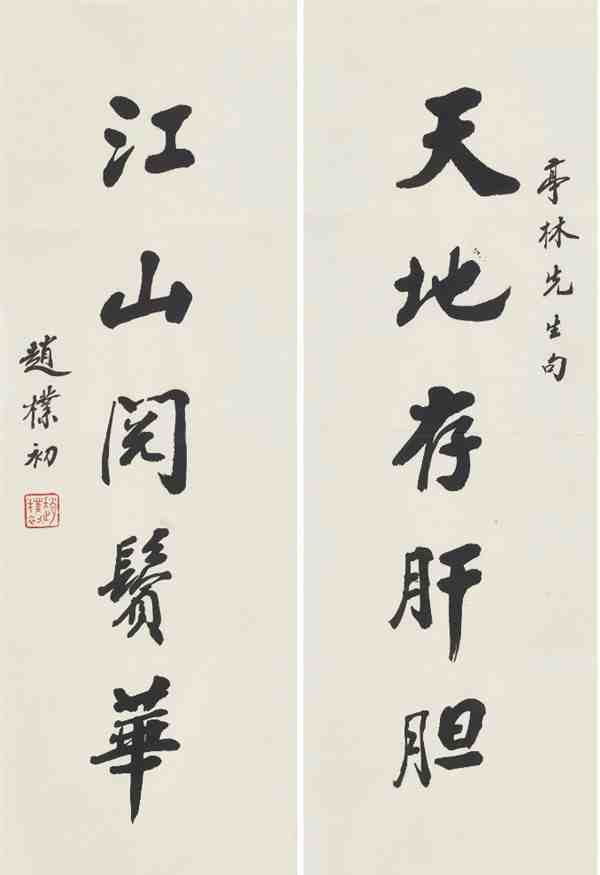 亭林先生句
天地存肝胆
江山阅鬓華
趙樸初